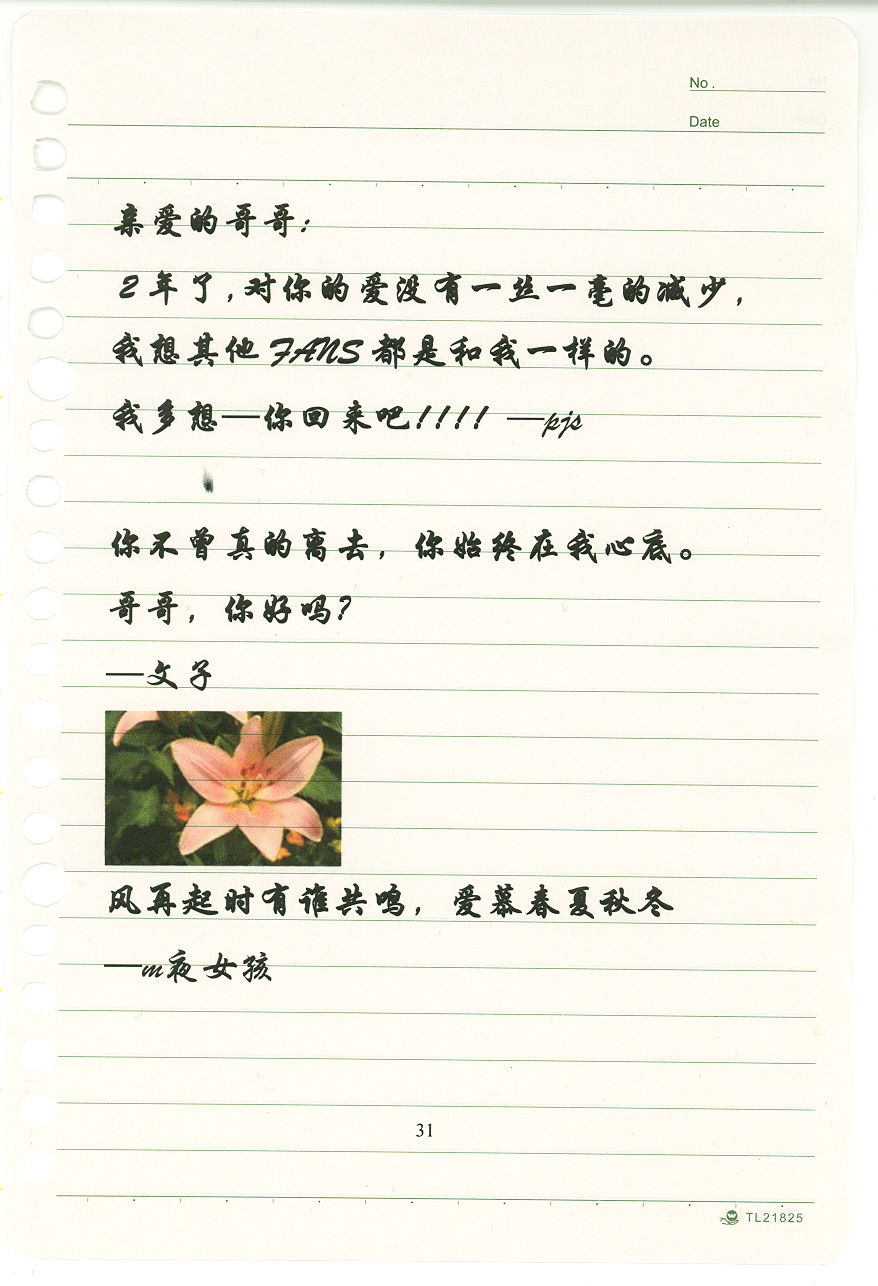 No.
Date
亲爱的哥哥：
2年了,对你的爱没有一丝一毫的减少，
我想其他FANS都是和我一样的。
我多想—你回来吧!!!! —pjs
你不曾真的离去，你始终在我心底。
哥哥，你好吗?
—文子
风再起时有谁共鸣，爱慕春夏秋冬
—m夜女孩
31
TL21825